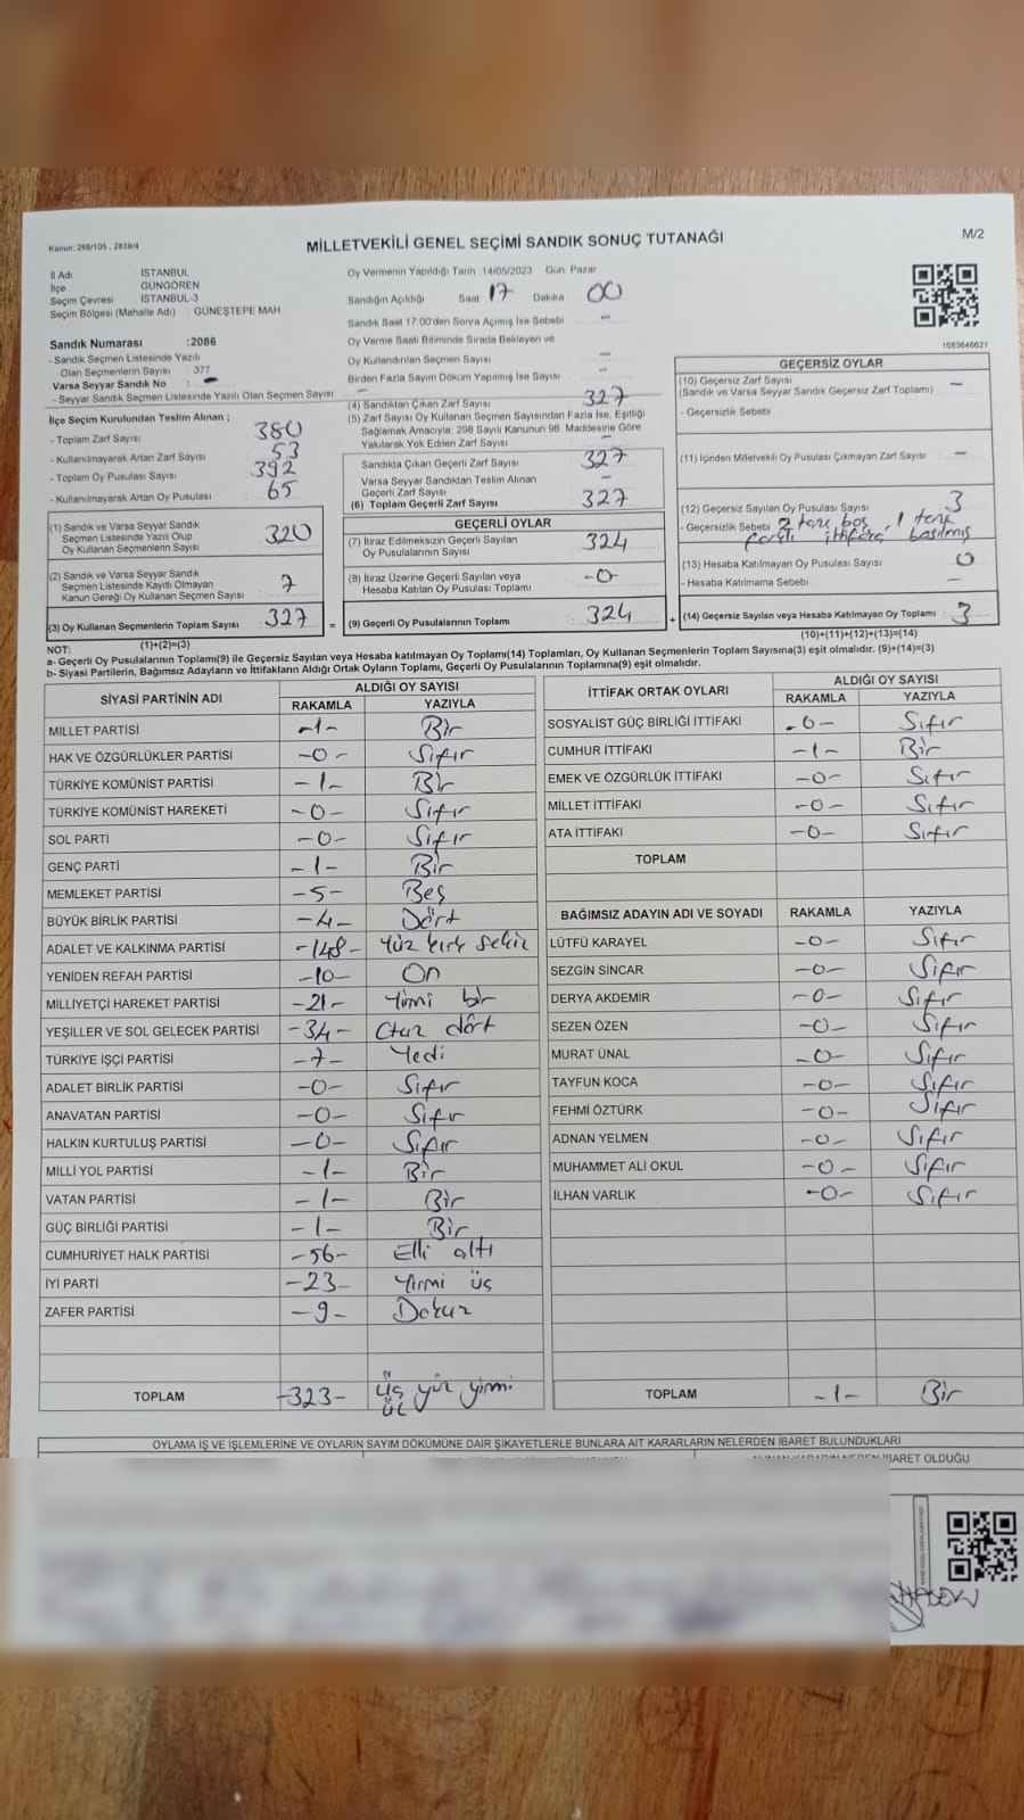 Kanun: 298/105 , 2839/4
MİLLETVEKİLİ GENEL SEÇİMİ SANDIK SONUÇ TUTANAĞI
M/2
İl Adı İSTANBUL
İlçe GÜNGÖREN
Seçim Çevresi İSTANBUL-3
Seçim Bölgesi (Mahalle Adı) GÜNEŞTEPE MAH
Oy Vermenin Yapıldığı Tarih 14/05/2023 Gün Pazar
Sandığın Açıldığı Saat 17 Dakika 00
Sandık Saat 17:00'den Sonra Açılmış İse Sebebi -
Oy Verme Saati Bitiminde Sırada Bekleyen ve
Oy Kullandırılan Seçmen Sayısı -
Birden Fazla Sayım Döküm Yapılmış İse Sayısı -
1083646621
Sandık Numarası :2086
- Sandık Seçmen Listesinde Yazılı
Olan Seçmenlerin Sayısı 377
Varsa Seyyar Sandık No : -
- Seyyar Sandık Seçmen Listesinde Yazılı Olan Seçmen Sayısı -
İlçe Seçim Kurulundan Teslim Alınan ;
- Toplam Zarf Sayısı 380
- Kullanılmayarak Artan Zarf Sayısı 53
- Toplam Oy Pusulası Sayısı 392
- Kullanılmayarak Artan Oy Pusulası 65
(1) Sandık ve Varsa Seyyar Sandık
Seçmen Listesinde Yazılı Olup
Oy Kullanan Seçmenlerin Sayısı 320
(2) Sandık ve Varsa Seyyar Sandık
Seçmen Listesinde Kayıtlı Olmayan
Kanun Gereği Oy Kullanan Seçmen Sayısı 7
(3) Oy Kullanan Seçmenlerin Toplam Sayısı 327
(1)+(2)=(3)
(4) Sandıktan Çıkan Zarf Sayısı 327
(5) Zarf Sayısı Oy Kullanan Seçmen Sayısından Fazla İse, Eşitliği
Sağlamak Amacıyla; 298 Sayılı Kanunun 98. Maddesine Göre
Yakılarak Yok Edilen Zarf Sayısı -
Sandıkta Çıkan Geçerli Zarf Sayısı 327
Varsa Seyyar Sandıktan Teslim Alınan
Geçerli Zarf Sayısı -
(6) Toplam Geçerli Zarf Sayısı 327
GEÇERLİ OYLAR
(7) İtiraz Edilmeksizin Geçerli Sayılan
Oy Pusulalarının Sayısı 324
(8) İtiraz Üzerine Geçerli Sayılan veya
Hesaba Katılan Oy Pusulası Toplamı -0-
= (9) Geçerli Oy Pusulalarının Toplamı 324 +
GEÇERSİZ OYLAR
(10) Geçersiz Zarf Sayısı -
(Sandık ve Varsa Seyyar Sandık Geçersiz Zarf Toplamı)
- Geçersizlik Sebebi
(11) İçinden Milletvekili Oy Pusulası Çıkmayan Zarf Sayısı -
(12) Geçersiz Sayılan Oy Pusulası Sayısı 3
- Geçersizlik Sebebi 2 tane boş, 1 tane
farklı ittifaka basılmış
(13) Hesaba Katılmayan Oy Pusulası Sayısı 0
- Hesaba Katılmama Sebebi -
(14) Geçersiz Sayılan veya Hesaba Katılmayan Oy Toplamı 3
(10)+(11)+(12)+(13)=(14)
NOT:
a- Geçerli Oy Pusulalarının Toplamı(9) ile Geçersiz Sayılan veya Hesaba katılmayan Oy Toplamı(14) Toplamları, Oy Kullanan Seçmenlerin Toplam Sayısına(3) eşit olmalıdır. (9)+(14)=(3)
b- Siyasi Partilerin, Bağımsız Adayların ve İttifakların Aldığı Ortak Oyların Toplamı, Geçerli Oy Pusulalarının Toplamına(9) eşit olmalıdır.
SİYASİ PARTİNİN ADI ALDIĞI OY SAYISI
RAKAMLA YAZIYLA
MİLLET PARTİSİ -1- Bir
HAK VE ÖZGÜRLÜKLER PARTİSİ -0- Sıfır
TÜRKİYE KOMÜNİST PARTİSİ -1- Bir
TÜRKİYE KOMÜNİST HAREKETİ -0- Sıfır
SOL PARTİ -0- Sıfır
GENÇ PARTİ -1- Bir
MEMLEKET PARTİSİ -5- Beş
BÜYÜK BİRLİK PARTİSİ -4- Dört
ADALET VE KALKINMA PARTİSİ -148- Yüz kırk sekiz
YENİDEN REFAH PARTİSİ -10- On
MİLLİYETÇİ HAREKET PARTİSİ -21- Yirmi bir
YEŞİLLER VE SOL GELECEK PARTİSİ -34- Otuz dört
TÜRKİYE İŞÇİ PARTİSİ -7- Yedi
ADALET BİRLİK PARTİSİ -0- Sıfır
ANAVATAN PARTİSİ -0- Sıfır
HALKIN KURTULUŞ PARTİSİ -0- Sıfır
MİLLİ YOL PARTİSİ -1- Bir
VATAN PARTİSİ -1- Bir
GÜÇ BİRLİĞİ PARTİSİ -1- Bir
CUMHURİYET HALK PARTİSİ -56- Elli altı
İYİ PARTİ -23- Yirmi üç
ZAFER PARTİSİ -9- Dokuz
TOPLAM -323- Üç yüz yirmi
üç
İTTİFAK ORTAK OYLARI ALDIĞI OY SAYISI
RAKAMLA YAZIYLA
SOSYALİST GÜÇ BİRLİĞİ İTTİFAKI -0- Sıfır
CUMHUR İTTİFAKI -1- Bir
EMEK VE ÖZGÜRLÜK İTTİFAKI -0- Sıfır
MİLLET İTTİFAKI -0- Sıfır
ATA İTTİFAKI -0- Sıfır
TOPLAM
BAĞIMSIZ ADAYIN ADI VE SOYADI RAKAMLA YAZIYLA
LÜTFÜ KARAYEL -0- Sıfır
SEZGİN SİNCAR -0- Sıfır
DERYA AKDEMİR -0- Sıfır
SEZEN ÖZEN -0- Sıfır
MURAT ÜNAL -0- Sıfır
TAYFUN KOCA -0- Sıfır
FEHMİ ÖZTÜRK -0- Sıfır
ADNAN YELMEN -0- Sıfır
MUHAMMET ALİ OKUL -0- Sıfır
İLHAN VARLIK -0- Sıfır
TOPLAM -1- Bir
OYLAMA İŞ VE İŞLEMLERİNE VE OYLARIN SAYIM DÖKÜMÜNE DAİR ŞİKAYETLERLE BUNLARA AİT KARARLARIN NELERDEN İBARET BULUNDUKLARI
İBARET OLDUĞU